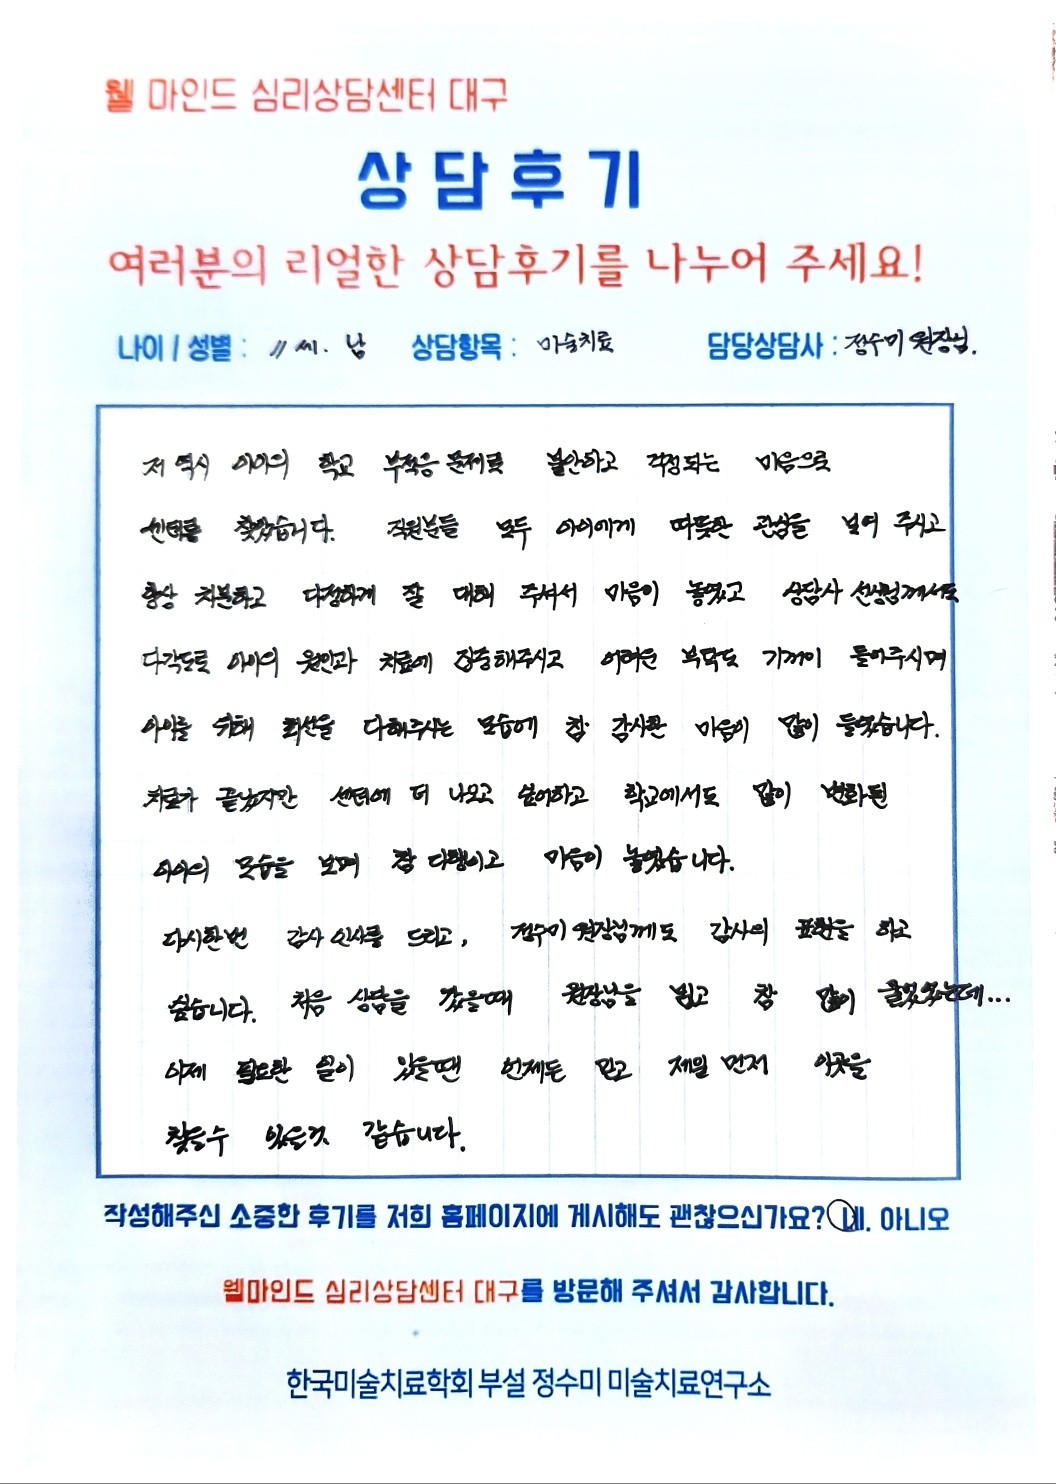 웰 마인드 심리상담센터 대구
상담후기
여러분의 리얼한 상담후기를 나누어 주세요!
나이 / 성별 : 11세. 남 상담항목 : 미술치료 담당상담사 : 정수미 원장님.
저 역시 아이의 학교 부적응 문제로 불안하고 걱정되는 마음으로
센터를 찾았습니다. 직원분들 모두 아이에게 따뜻한 관심을 보여 주시고
항상 차분하고 다정하게 잘 대해 주셔서 마음이 놓였고 상담사 선생님께서도
다각도로 아이의 원인과 치료에 집중해주시고 어려운 부탁도 기꺼이 들어주시며
아이를 위해 최선을 다해주시는 모습에 참 감사한 마음이 많이 들었습니다.
치료가 끝났지만 센터에 더 나오고 싶어하고 학교에서도 많이 변화된
아이의 모습을 보며 참 다행이고 마음이 놓였습니다.
다시한번 감사 인사를 드리고, 정수미 원장님께도 감사의 표현을 하고
싶습니다. 처음 상담을 갔을때 원장님을 뵙고 참 많이 울었었는데...
이제 필요한 일이 있을땐 언제든 믿고 제일 먼저 이곳을
찾을수 있을것 같습니다.
작성해주신 소중한 후기를 저희 홈페이지에 게시해도 괜찮으신가요? 네. 아니오
웰마인드 심리상담센터 대구를 방문해 주셔서 감사합니다.
한국미술치료학회 부설 정수미 미술치료연구소